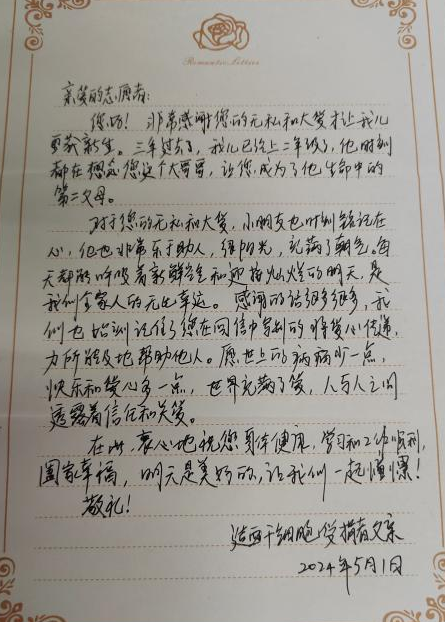 Romantic Letters
亲爱的志愿者:
您好! 非常感谢您的无私和大爱才让我儿
重获新生。三年过去了,我儿已经上二年级了,他时刻
都在想念您这个大哥哥,说您成为了他生命中的
第二父母。
对于您的无私和大爱,小朋友也时刻铭记在
心,他也非常乐于助人,很阳光,充满了朝气。每
天都能呼吸着新鲜空气和迎接灿烂的明天,是
我们全家人的无比幸运。感谢的话很多很多,我
们也培训记住了您在回信中写到的将爱心传递,
力所能及地帮助他人。愿世上的病痛少一点,
快乐和爱心多一点,世界充满了爱,人与人之间
透露着信任和关爱。
在此,衷心地祝您身体健康,学习和工作顺利,
阖家幸福,明天是美好的,让我们一起憧憬!
敬礼!
造血干细胞受捐者父亲
2024年5月1日